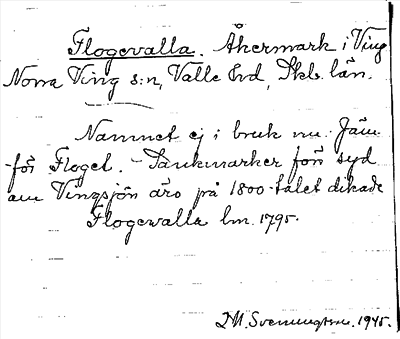 Flogevalla. Åkermark i Ving
Norra Ving s:n, Valle hd, Skb. län.
Namnet ej i bruk nu. Jäm-
för Floget. - Sankmarker för syd
om Vingsjön äro på 1800-talet dikade
Flogevalla lm. 1795.
M. Svenungsson. 1945.